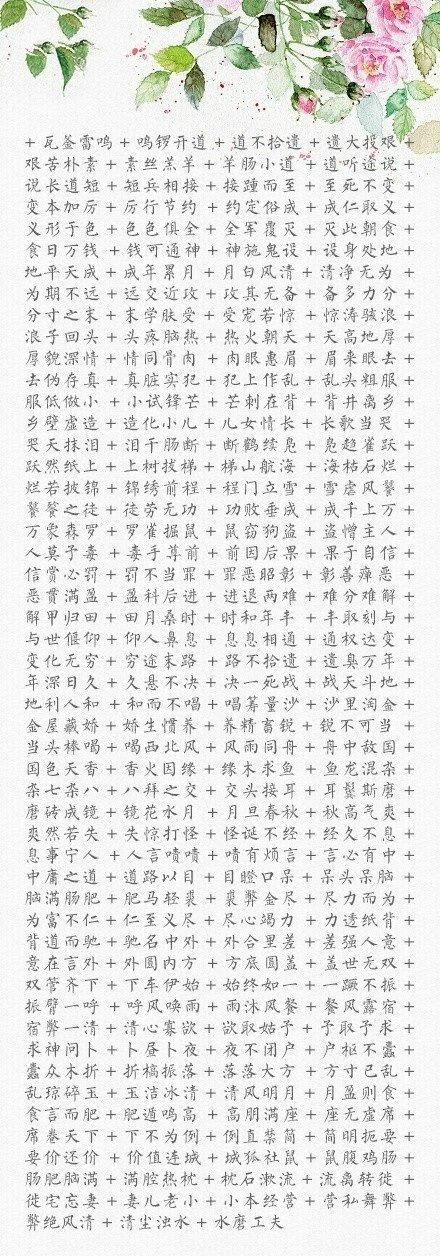 + 瓦釜雷鸣 + 鸣锣开道 + 道不拾遗 + 遗大投艰 +
艰苦朴素 + 素丝羔羊 + 羊肠小道 + 道听途说 +
说长道短 + 短兵相接 + 接踵而至 + 至死不变 +
变本加厉 + 厉行节约 + 约定俗成 + 成仁取义 +
义形于色 + 色色俱全 + 全军覆灭 + 灭此朝食 +
食日万钱 + 钱可通神 + 神施鬼设 + 设身处地 +
地平天成 + 成年累月 + 月白风清 + 清净无为 +
为期不远 + 远交近攻 + 攻其无备 + 备多力分 +
分寸之末 + 末学肤受 + 受宠若惊 + 惊涛骇浪 +
浪子回头 + 头疼脑热 + 热火朝天 + 天高地厚 +
厚貌深情 + 情同骨肉 + 肉眼惠眉 + 眉来眼去 +
去伪存真 + 真脏实犯 + 犯上作乱 + 乱头粗服 +
服低做小 + 小试锋芒 + 芒刺在背 + 背井离乡 +
乡壁虚造 + 造化小儿 + 儿女情长 + 长歌当哭 +
哭天抹泪 + 泪干肠断 + 断鹤续凫 + 凫趋雀跃 +
跃然纸上 + 上树拔梯 + 梯山航海 + 海枯石烂 +
烂若披锦 + 锦绣前程 + 程门立雪 + 雪虐风饕 +
饕餮之徒 + 徒劳无功 + 功败垂成 + 成千上万 +
万象森罗 + 罗雀掘鼠 + 鼠窃狗盗 + 盗憎主人 +
人莫予毒 + 毒手尊前 + 前因后果 + 果于自信 +
信赏必罚 + 罚不当罪 + 罪恶昭彰 + 彰善瘅恶 +
恶贯满盈 + 盈科后进 + 进退两难 + 难分难解 +
解甲归田 + 田月桑时 + 时和年丰 + 丰取刻与 +
与世偃仰 + 仰人鼻息 + 息息相通 + 通权达变 +
变化无穷 + 穷途末路 + 路不拾遗 + 遗臭万年 +
年深日久 + 久悬不决 + 决一死战 + 战天斗地 +
地利人和 + 和而不唱 + 唱筹量沙 + 沙里淘金 +
金屋藏娇 + 娇生惯养 + 养精畜锐 + 锐不可当 +
当头棒喝 + 喝西北风 + 风雨同舟 + 舟中敌国 +
国色天香 + 香火因缘 + 缘木求鱼 + 鱼龙混杂 +
杂七杂八 + 八拜之交 + 交头接耳 + 耳鬓斯磨 +
磨砖成镜 + 镜花水月 + 月旦春秋 + 秋高气爽 +
爽然若失 + 失惊打怪 + 怪诞不经 + 经久不息 +
息事宁人 + 人言啧啧 + 啧有烦言 + 言必有中 +
中庸之道 + 道路以目 + 目瞪口呆 + 呆头呆脑 +
脑满肠肥 + 肥马轻裘 + 裘弊金尽 + 尽力而为 +
为富不仁 + 仁至义尽 + 尽心竭力 + 力透纸背 +
背道而驰 + 驰名中外 + 外合里差 + 差强人意 +
意在言外 + 外圆内方 + 方底圆盖 + 盖世无双 +
双管齐下 + 下车伊始 + 始终如一 + 一蹶不振 +
振臂一呼 + 呼风唤雨 + 雨沐风餐 + 餐风露宿 +
宿弊一清 + 清心寡欲 + 欲取姑予 + 予取予求 +
求神问卜 + 卜昼卜夜 + 夜不闭户 + 户枢不蠹 +
蠹众木折 + 折槁振落 + 落落大方 + 方寸已乱 +
乱琼碎玉 + 玉洁冰清 + 清风明月 + 月盈则食 +
食言而肥 + 肥遁鸣高 + 高朋满座 + 座无虚席 +
席卷天下 + 下不为例 + 例直禁简 + 简明扼要 +
要价还价 + 价值连城 + 城狐社鼠 + 鼠腹鸡肠 +
肠肥脑满 + 满腔热枕 + 枕石漱流 + 流离转徙 +
徙宅忘妻 + 妻儿老小 + 小本经营 + 营私舞弊 +
弊绝风清 + 清尘浊水 + 水磨工夫